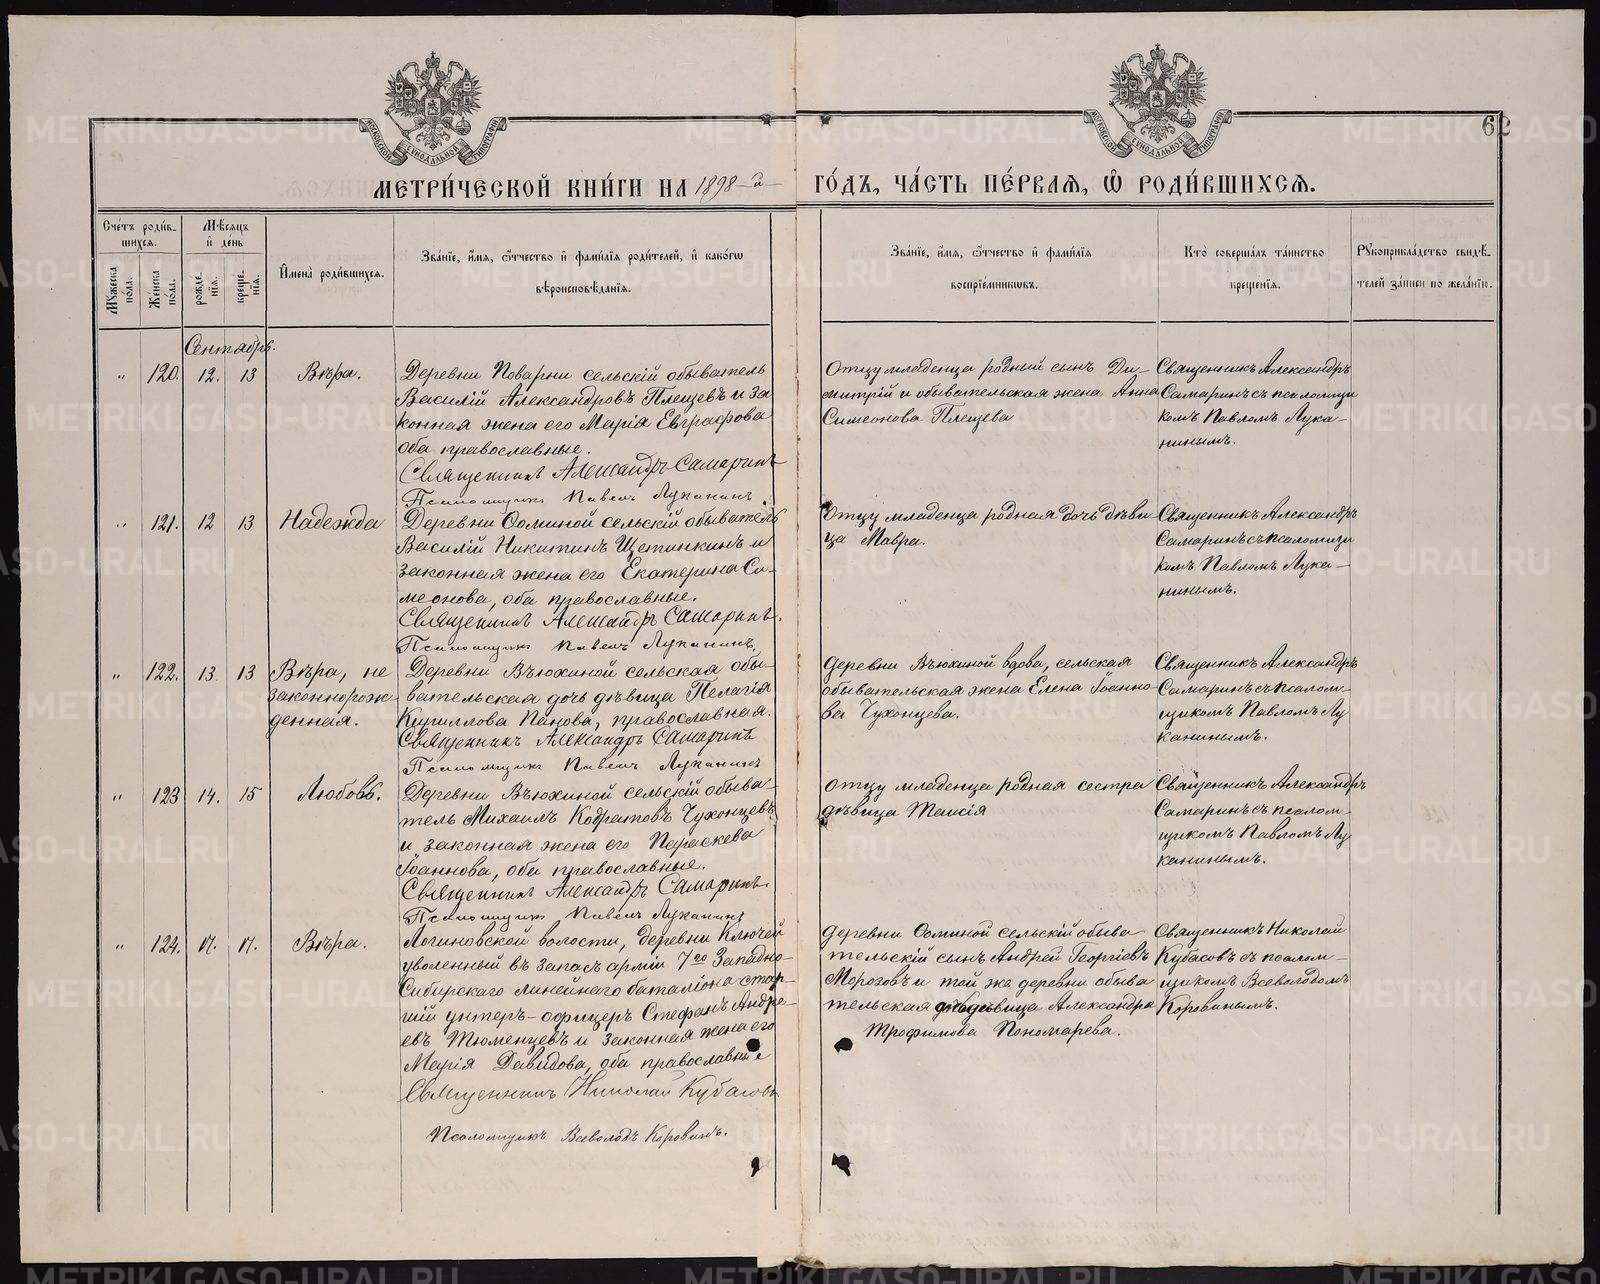 62
МЕТРИ́ЧЕСКОЙ КНИ́ГИ НА 1898-й ГО́ДЪ, ЧА́СТЬ ПЕ́РВАЯ, Ѽ РОДИ́ВШИХСЯ.
Сче́тъ роди́в-
шихся.
Мѣ́сяцъ
и҆ де́нь
Мꙋ́жеска по́ла.
Же́нска по́ла.
рожде́-
нїя.
креще́-
нїя.
И҆мена̀ роди́вшихся.
Зва́нїе, и҆́мя, ѻ҆́тчество и҆ фами́лїя роди́телей, и҆ како́гѡ
вѣроисповѣ́данїя.
Зва́нїе, и҆́мя, ѻ҆́тчество и҆ фами́лїя
воспрїе́мникѡвъ.
Кто̀ соверша́лъ та́инство
креще́нїя.
Рꙋкоприкла́дство свидѣ́-
телей за́писи по жела́нїю.
Сентябрь.
„ 120. 12. 13 Вѣра.
Деревни Поварни сельскій обыватель
Василій Александровъ Плещевъ и за
конная жена его Марія Евграфова
оба православные.
Священникъ Александръ Самаринъ
Псаломщикъ Павелъ Луканинъ
Отцу младенца родный сынъ Ди-
митрій и обывательская жена Анна
Симеонова Плещева
Священникъ Александръ
Самаринъ съ псаломщи
комъ Павломъ Лука-
нинымъ.
„ 121. 12 13 Надежда
Деревни Ѳоминой сельскій обыватель
Василій Никитинъ Щетинкинъ и
законная жена его Екатерина Си-
меонова, оба православные.
Священникъ Александръ Самаринъ.
Псаломщикъ Павелъ Луканинъ
Отцу младенца родная дочь дѣви-
ца Мавра.
Священникъ Александръ
Самаринъ съ псаломщи
комъ Павломъ Лука-
нинымъ.
„ 122. 13 13 Вѣра, не
законнорож-
денная.
Деревни Вьюхиной сельская обы-
вательская дочь дѣвица Пелагія
Кириллова Панова, православная.
Священникъ Александръ Самаринъ
Псаломщикъ Павелъ Луканинъ
деревни Вьюхиной вдова, сельская
обывательская жена Елена Іоанно-
ва Чухонцева.
Священникъ Александръ
Самаринъ съ псалом-
щикомъ Павломъ Лу
канинымъ.
„ 123 14. 15 Любовь.
Деревни Вьюхиной сельскій обыва-
тель Михаилъ Кодратовъ Чухонцевъ
и законная жена его Параскева
Іоаннова, оба православные.
Священникъ Александръ Самаринъ.
Псаломщикъ Павелъ Луканинъ
Отцу младенца родная сестра
дѣвица Таисія
Священникъ Александръ
Самаринъ съ псалом-
щикомъ Павломъ Лу
канинымъ.
„ 124. 17. 17. Вѣра.
Логиновской волости, деревни Ключей
уволенный въ запасъ арміи 7го Западно-
Сибирскаго линейнаго баталіона стар-
шій унтеръ-офицеръ Стефанъ Андре-
евъ Тюменцевъ и законная жена его
Марія Давидова, оба православные
Священникъ Николай Кубасовъ
Псаломщикъ Всеволодъ Коровинъ.
деревни Ѳоминой сельскій обыва
тельскій сынъ Андрей Георгіевъ
Морозовъ и той же деревни обыва
тельская дѣвица Александра
Трофимова Пономарева.
Священникъ Николай
Кубасовъ съ псалом-
щикомъ Всеволодомъ
Коровинымъ.
METRIKI.GASO-URAL.RU